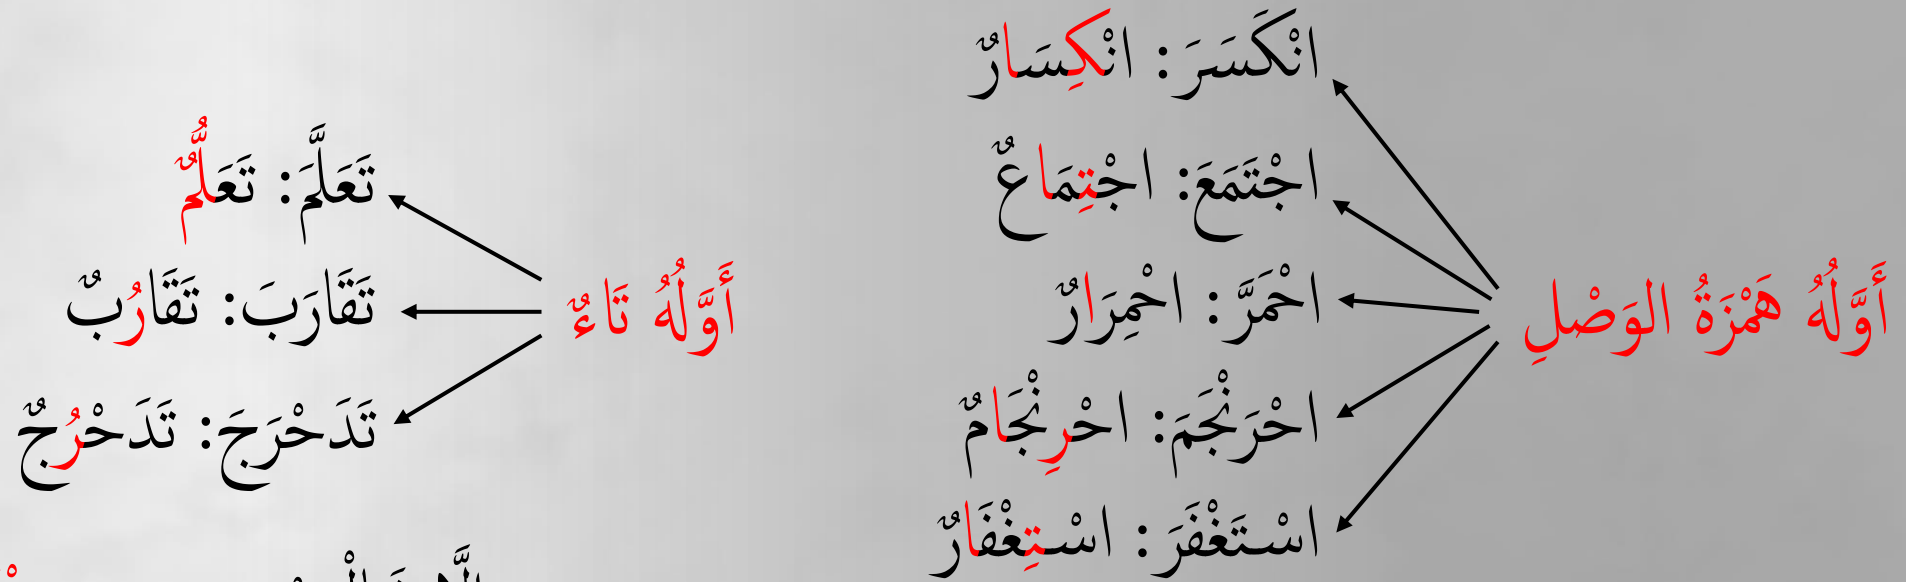 أَوَّلُهُ هَمْزَةُ الوَصْلِ
انْكَسَرَ: انْكِسَارٌ
اجْتَمَعَ: اجْتِمَاعٌ
احْمَرَّ: احْمِرَارٌ
احْرَنْجَمَ: احْرِنْجَامٌ
اسْتَغْفَرَ: اسْتِغْفَارٌ
أَوَّلُهُ تَاءٌ
تَعَلَّمَ: تَعَلُّمٌ
تَقَارَبَ: تَقَارُبٌ
تَدَحْرَجَ: تَدَحْرُجٌ